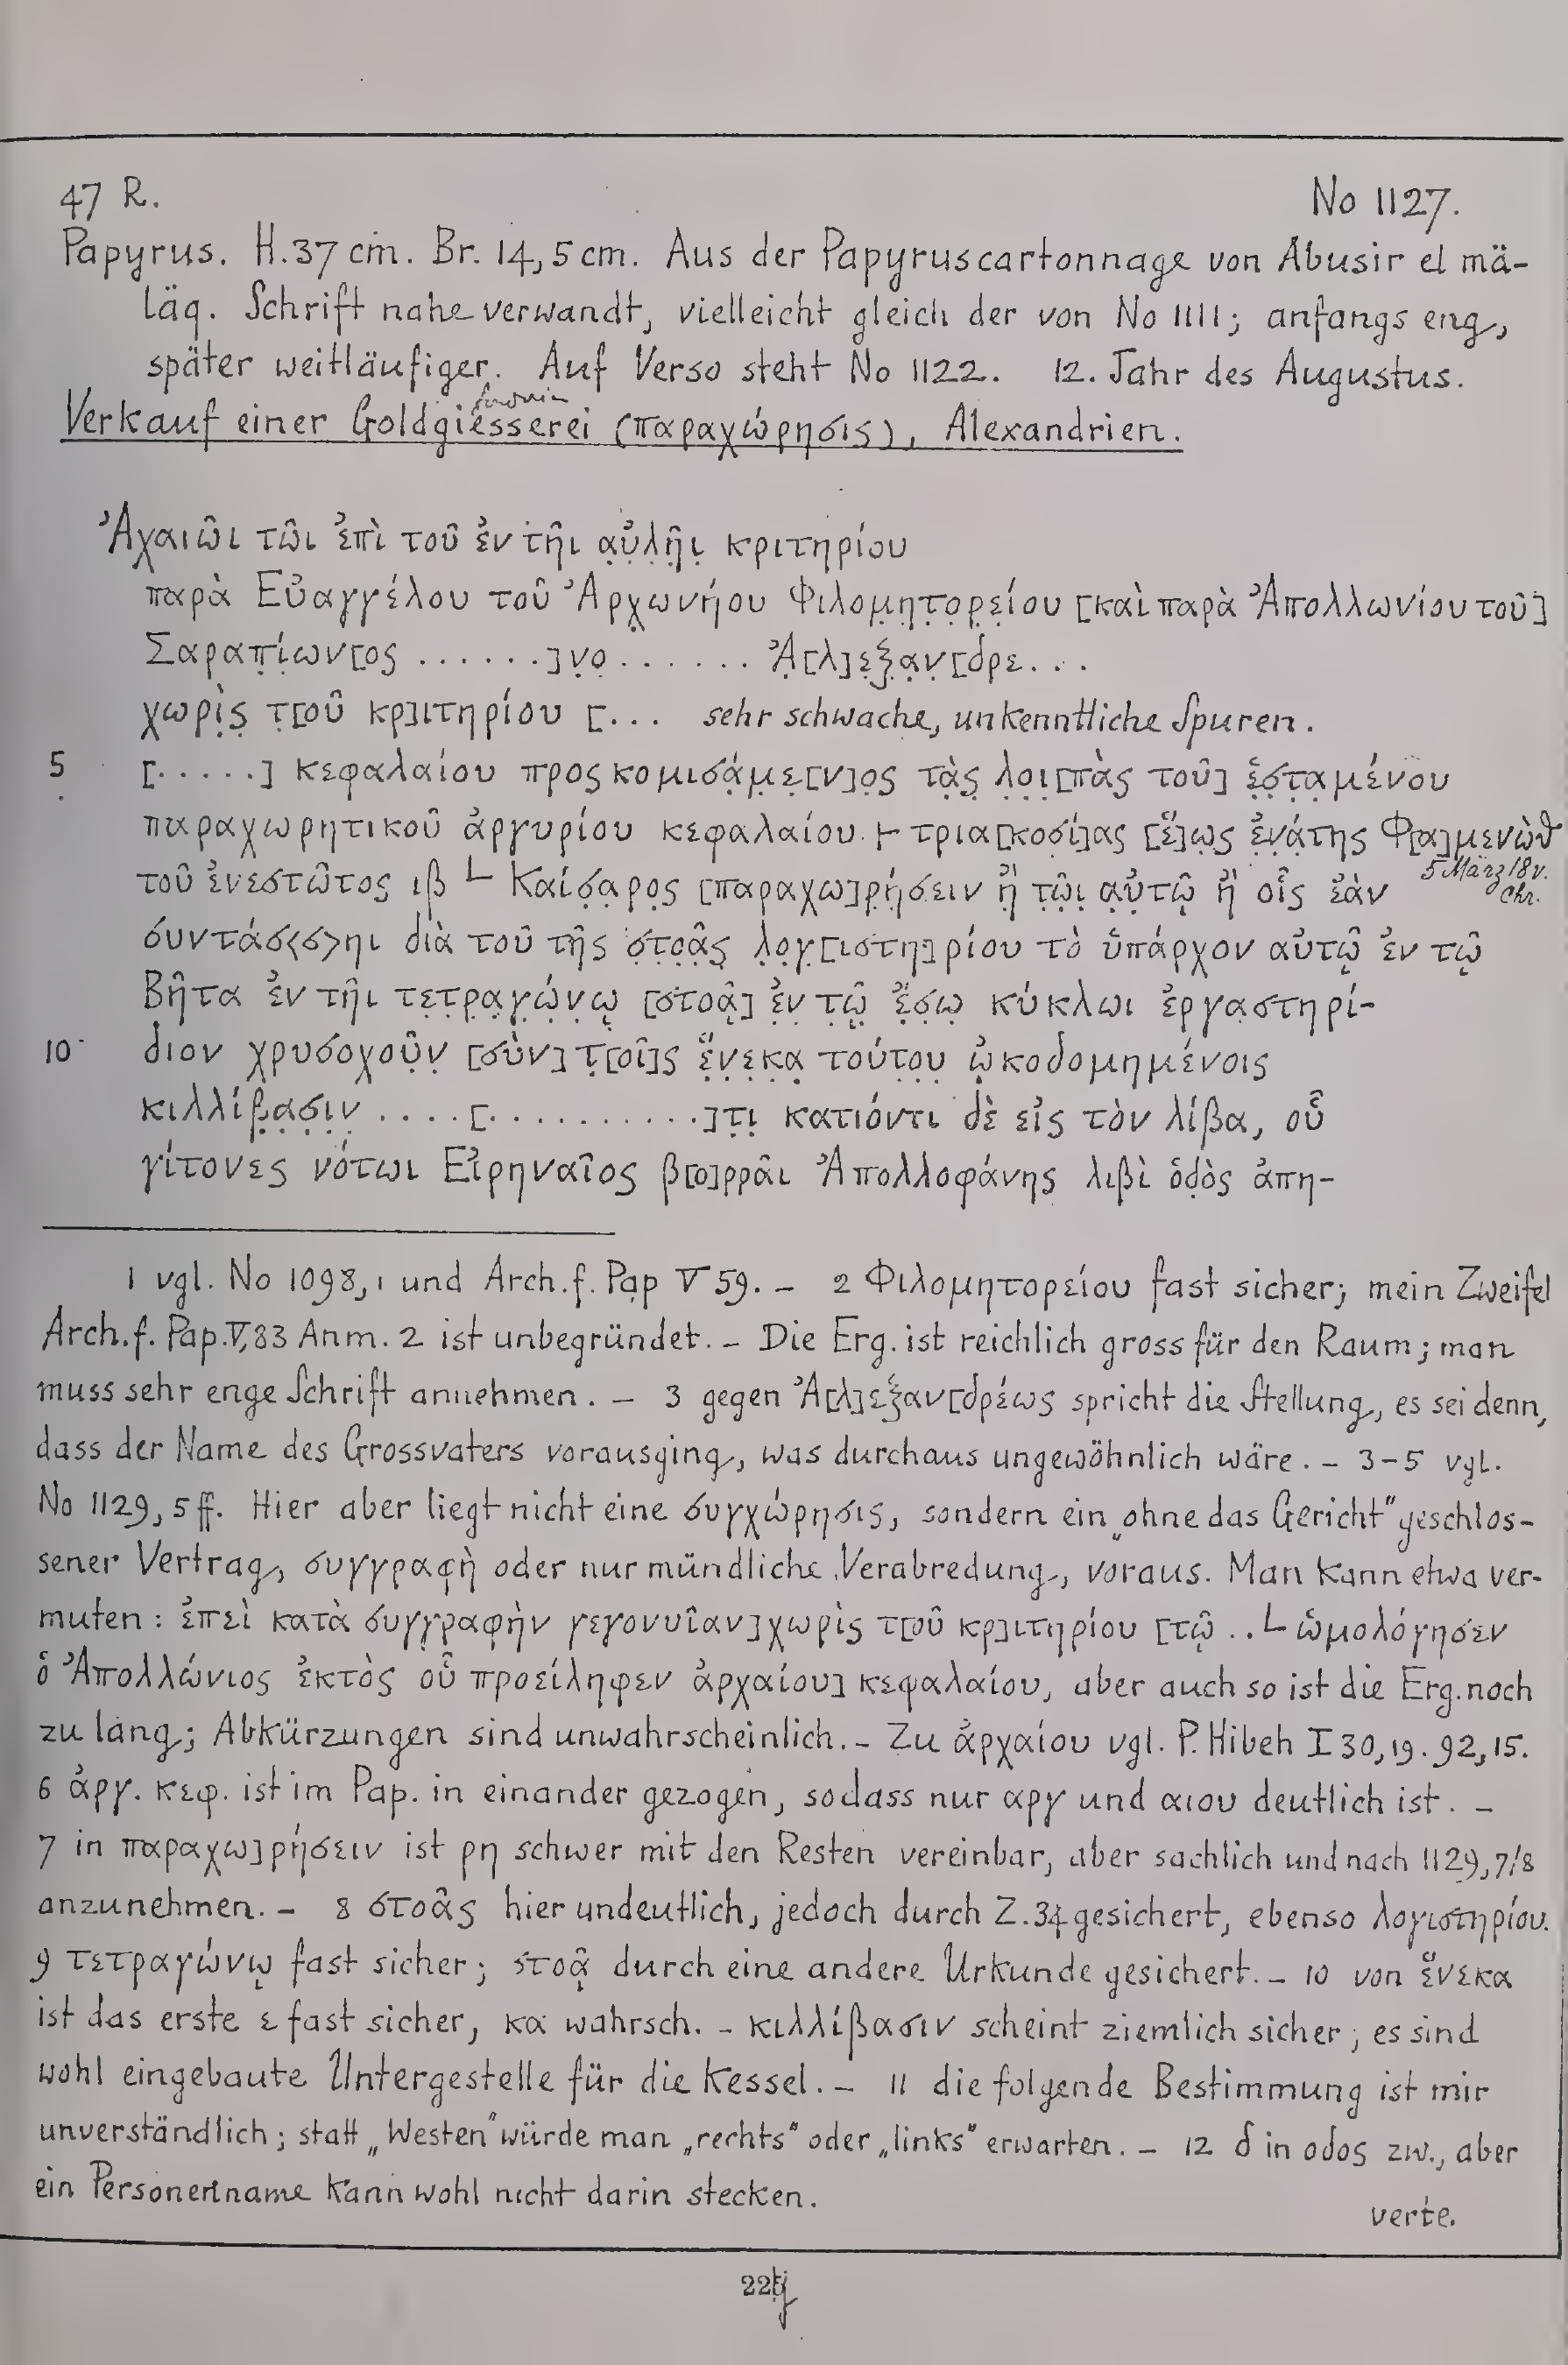 47 R.
No 1127.
Papyrus. H. 37 cm. Br. 14,5 cm. Aus der Papyruscartonnage von Abusir el mä-
läq. Schrift nahe verwandt, vielleicht gleich der von No 1111; anfangs eng,
später weitläufiger. Auf Verso steht No 1122. 12. Jahr des Augustus.
Verkauf einer Goldgiesserei (παραχώρησις), Alexandrien.
Ἀχαιῶι τῶι ἐπὶ τοῦ ἐν τῆι αὐ̣λ̣ῆ̣ι̣ κριτηρίου
παρὰ Εὐαγγέλου τοῦ Ἀρχ̣ωνήου Φιλομ̣η̣τ̣ο̣ρ̣ε̣ίου [καὶ παρὰ Ἀπολλωνίου τοῦ]
Σαραπ̣ίων[ος ......]ν̣ο̣....... Ἀ̣[λ]ε̣ξ̣α̣ν̣[δρε...
χωρὶ̣ς̣ τ̣[οῦ κρ]ιτηρίου [... sehr schwache, unkenntliche Spuren.
5 [.....] κεφαλαίου προσκομισά̣μ̣ε̣[ν]ο̣ς τὰ̣ς̣ λ̣ο̣ι̣[πὰς τοῦ] ἑ̣σ̣τ̣α̣μένου
παραχωρητικοῦ ἀργυρίου κεφαλαίου ⊢ τρια[κοσί]ας [ἕ]ω̣ς̣ ἐν̣ά̣της Φ[α]μενὼθ
5 März 18 v. Chr.
τοῦ ἐνεστῶτος ιβ L Καίσ̣α̣ρ̣ο̣ς [παραχω]ρ̣ή̣σειν ἢ̣ τ̣ῶ̣ι̣ α̣ὐ̣τῷ ἢ οἷς ἐὰν
συντάσ<σ>ηι διὰ τοῦ τῆς σ̣τ̣ο̣ᾶ̣ς̣ λ̣ο̣γ̣[ιστη]ρίου τὸ ὑπάρχον αὐτῷ ἐν τῷ
Βῆτα ἐν τῆι τε̣τ̣ρ̣α̣γ̣ώ̣ν̣ῳ̣ [στοᾷ] ἐ̣ν̣ τ̣ῷ̣ ἔ̣σ̣ω̣ κύκλωι ἐργαστηρί-
10 διον χρυσοχοῦ̣ν̣ [σὺν] τ̣[οῖ]ς ἕ̣ν̣ε̣κ̣α̣ τούτο̣υ̣ ᾠ̣κοδομημένοις
κιλλίβ̣α̣σ̣ι̣ν̣ ....[...........]τ̣ι̣ κατιόντι δὲ εἰς τὸν λίβα, οὗ
γίτονες νότωι Εἰρηναῖος β[ο]ρρᾶι Ἀπολλοφάνης λιβὶ ὁδ̣ὸς ἀπη-
1 vgl. No 1098,1 und Arch. f. Pap V 59. – 2 Φιλομητορείου fast sicher; mein Zweifel
Arch. f. Pap. V, 83 Anm. 2 ist unbegründet. – Die Erg. ist reichlich gross für den Raum; man
muss sehr enge Schrift annehmen. – 3 gegen Ἀ[λ]εξαν[δρέως spricht die Stellung, es sei denn,
dass der Name des Grossvaters vorausging, was durchaus ungewöhnlich wäre. – 3–5 vgl.
No 1129, 5 ff. Hier aber liegt nicht eine συγχώρησις, sondern ein „ohne das Gericht" geschlos-
sener Vertrag, συγγραφὴ oder nur mündliche Verabredung, voraus. Man kann etwa ver-
muten: ἐπεὶ κατὰ συγγραφὴν γεγονυῖαν] χωρὶς τ[οῦ κρ]ιτηρίου [τῷ .. L ὡμολόγησεν
ὁ Ἀπολλώνιος ἐκτὸς οὗ προείληφεν ἀρχαίου] κεφαλαίου, aber auch so ist die Erg. noch
zu lang; Abkürzungen sind unwahrscheinlich. – Zu ἀρχαίου vgl. P. Hibeh I 30,19. 92,15.
6 ἀργ. κεφ. ist im Pap. in einander gezogen, sodass nur αργ und αιου deutlich ist. –
7 in παραχω]ρήσειν ist ρη schwer mit den Resten vereinbar, aber sachlich und nach 1129,7/8
anzunehmen. – 8 στοᾶς hier undeutlich, jedoch durch Z. 34 gesichert, ebenso λογιστηρίου.
9 τετραγώνῳ fast sicher; στοᾷ durch eine andere Urkunde gesichert. – 10 von ἕνεκα
ist das erste ε fast sicher, κα wahrsch. – κιλλίβασιν scheint ziemlich sicher; es sind
wohl eingebaute Untergestelle für die Kessel. – 11 die folgende Bestimmung ist mir
unverständlich; statt „Westen" würde man „rechts" oder „links" erwarten. – 12 δ in οδος zw., aber
ein Personenname kann wohl nicht darin stecken.
verte.